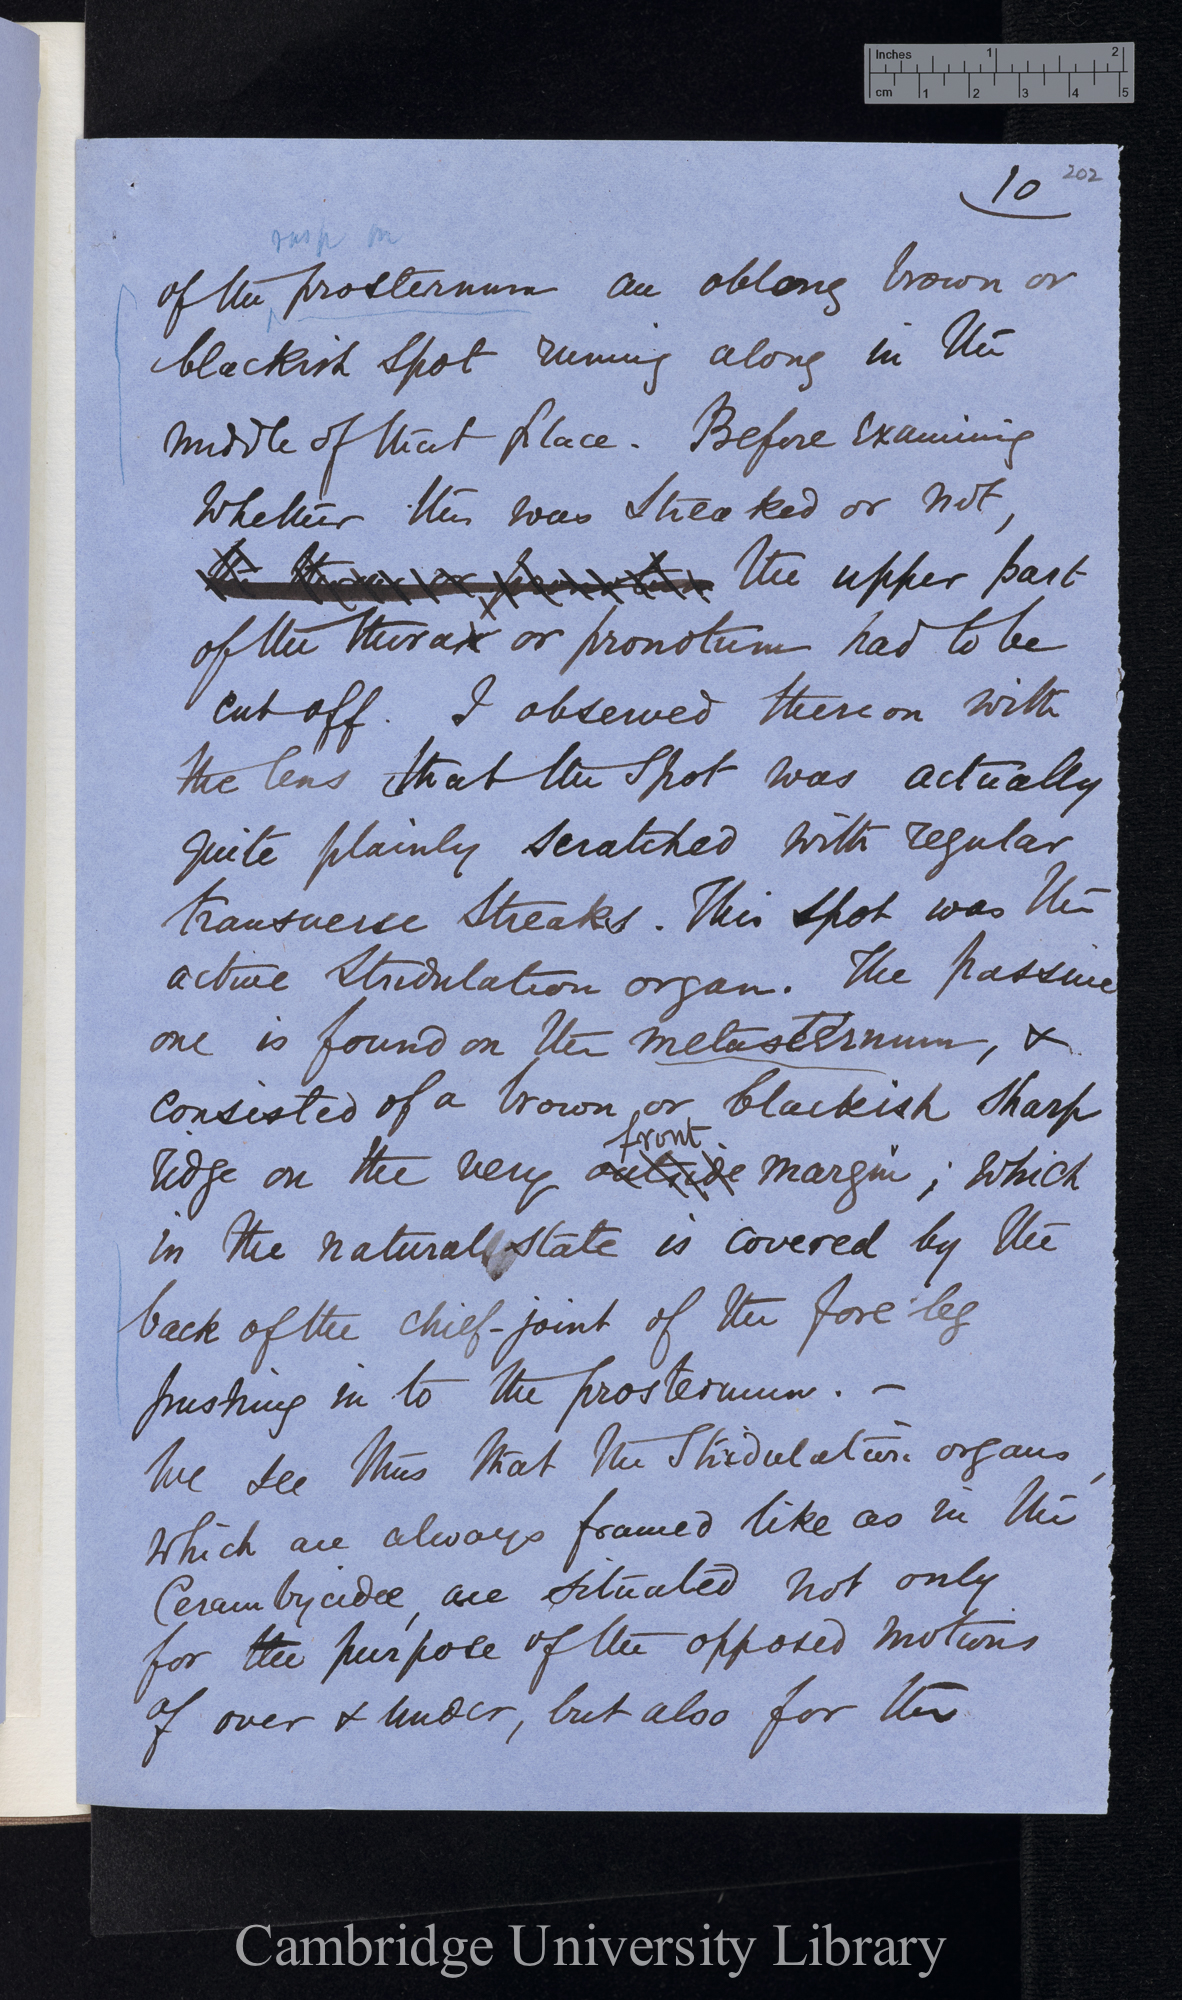 Inches 1 2
cm 1 2 3 4 5
10 202
rasp on
of the prosternum an oblong brown or
blackish spot running along in the
middle of that place. Before examining
whether this was streaked or not,
the thorax or pronotum the upper part
of the thorax or pronotum had to be
cut off. I observed thereon with
the lens that the spot was actually
quite plainly scratched with regular
transverse streaks. This spot was the
active stridulation organ. The passive
one is found on the metasternum, &
consisted of a brown or blackish sharp
front
ridge on the very outside margin; which
in the natural state is covered by the
back of the chief-joint of the fore leg
pushing in to the prosternum. –
We see thus that the Stridulation organs,
which are always framed like as in the
Cerambycidæ, are situated not only
for the purpose of the opposed motions
of over & under, but also for the
Cambridge University Library